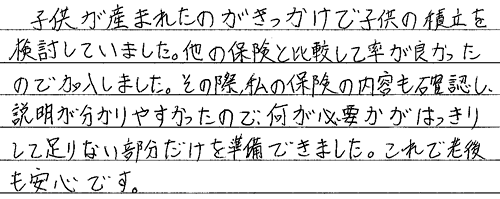 子供が産まれたのがきっかけで子供の積立を
検討していました。他の保険と比較して率が良かった
ので加入しました。その際、私の保険の内容も確認し、
説明が分かりやすかったので、何が必要かがはっきり
して足りない部分だけを準備できました。これで老後
も安心です。